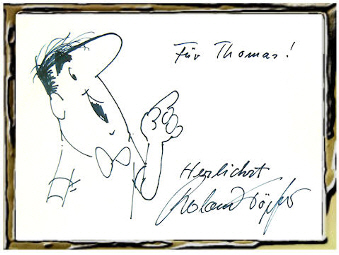 Für Thomas!
Herzlichst
Roland Töpfer